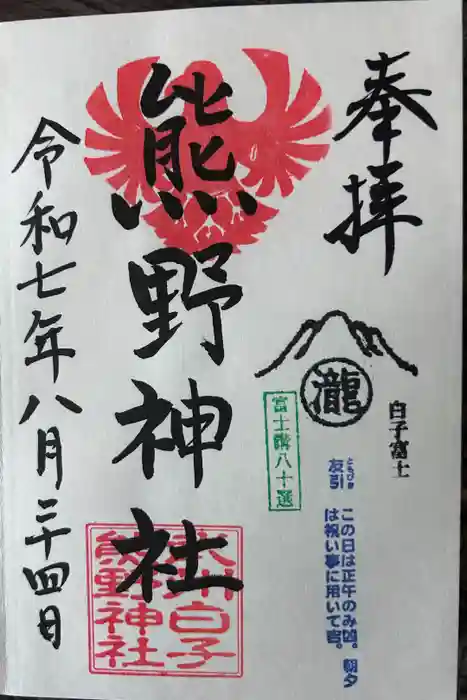 奉拝
白子富士
瀧
富士講八十選
友引
ともびき
この日は正午のみ凶。朝夕
は祝い事に用いて吉。
熊野神社
白子
熊野神社
令和七年八月二十四日